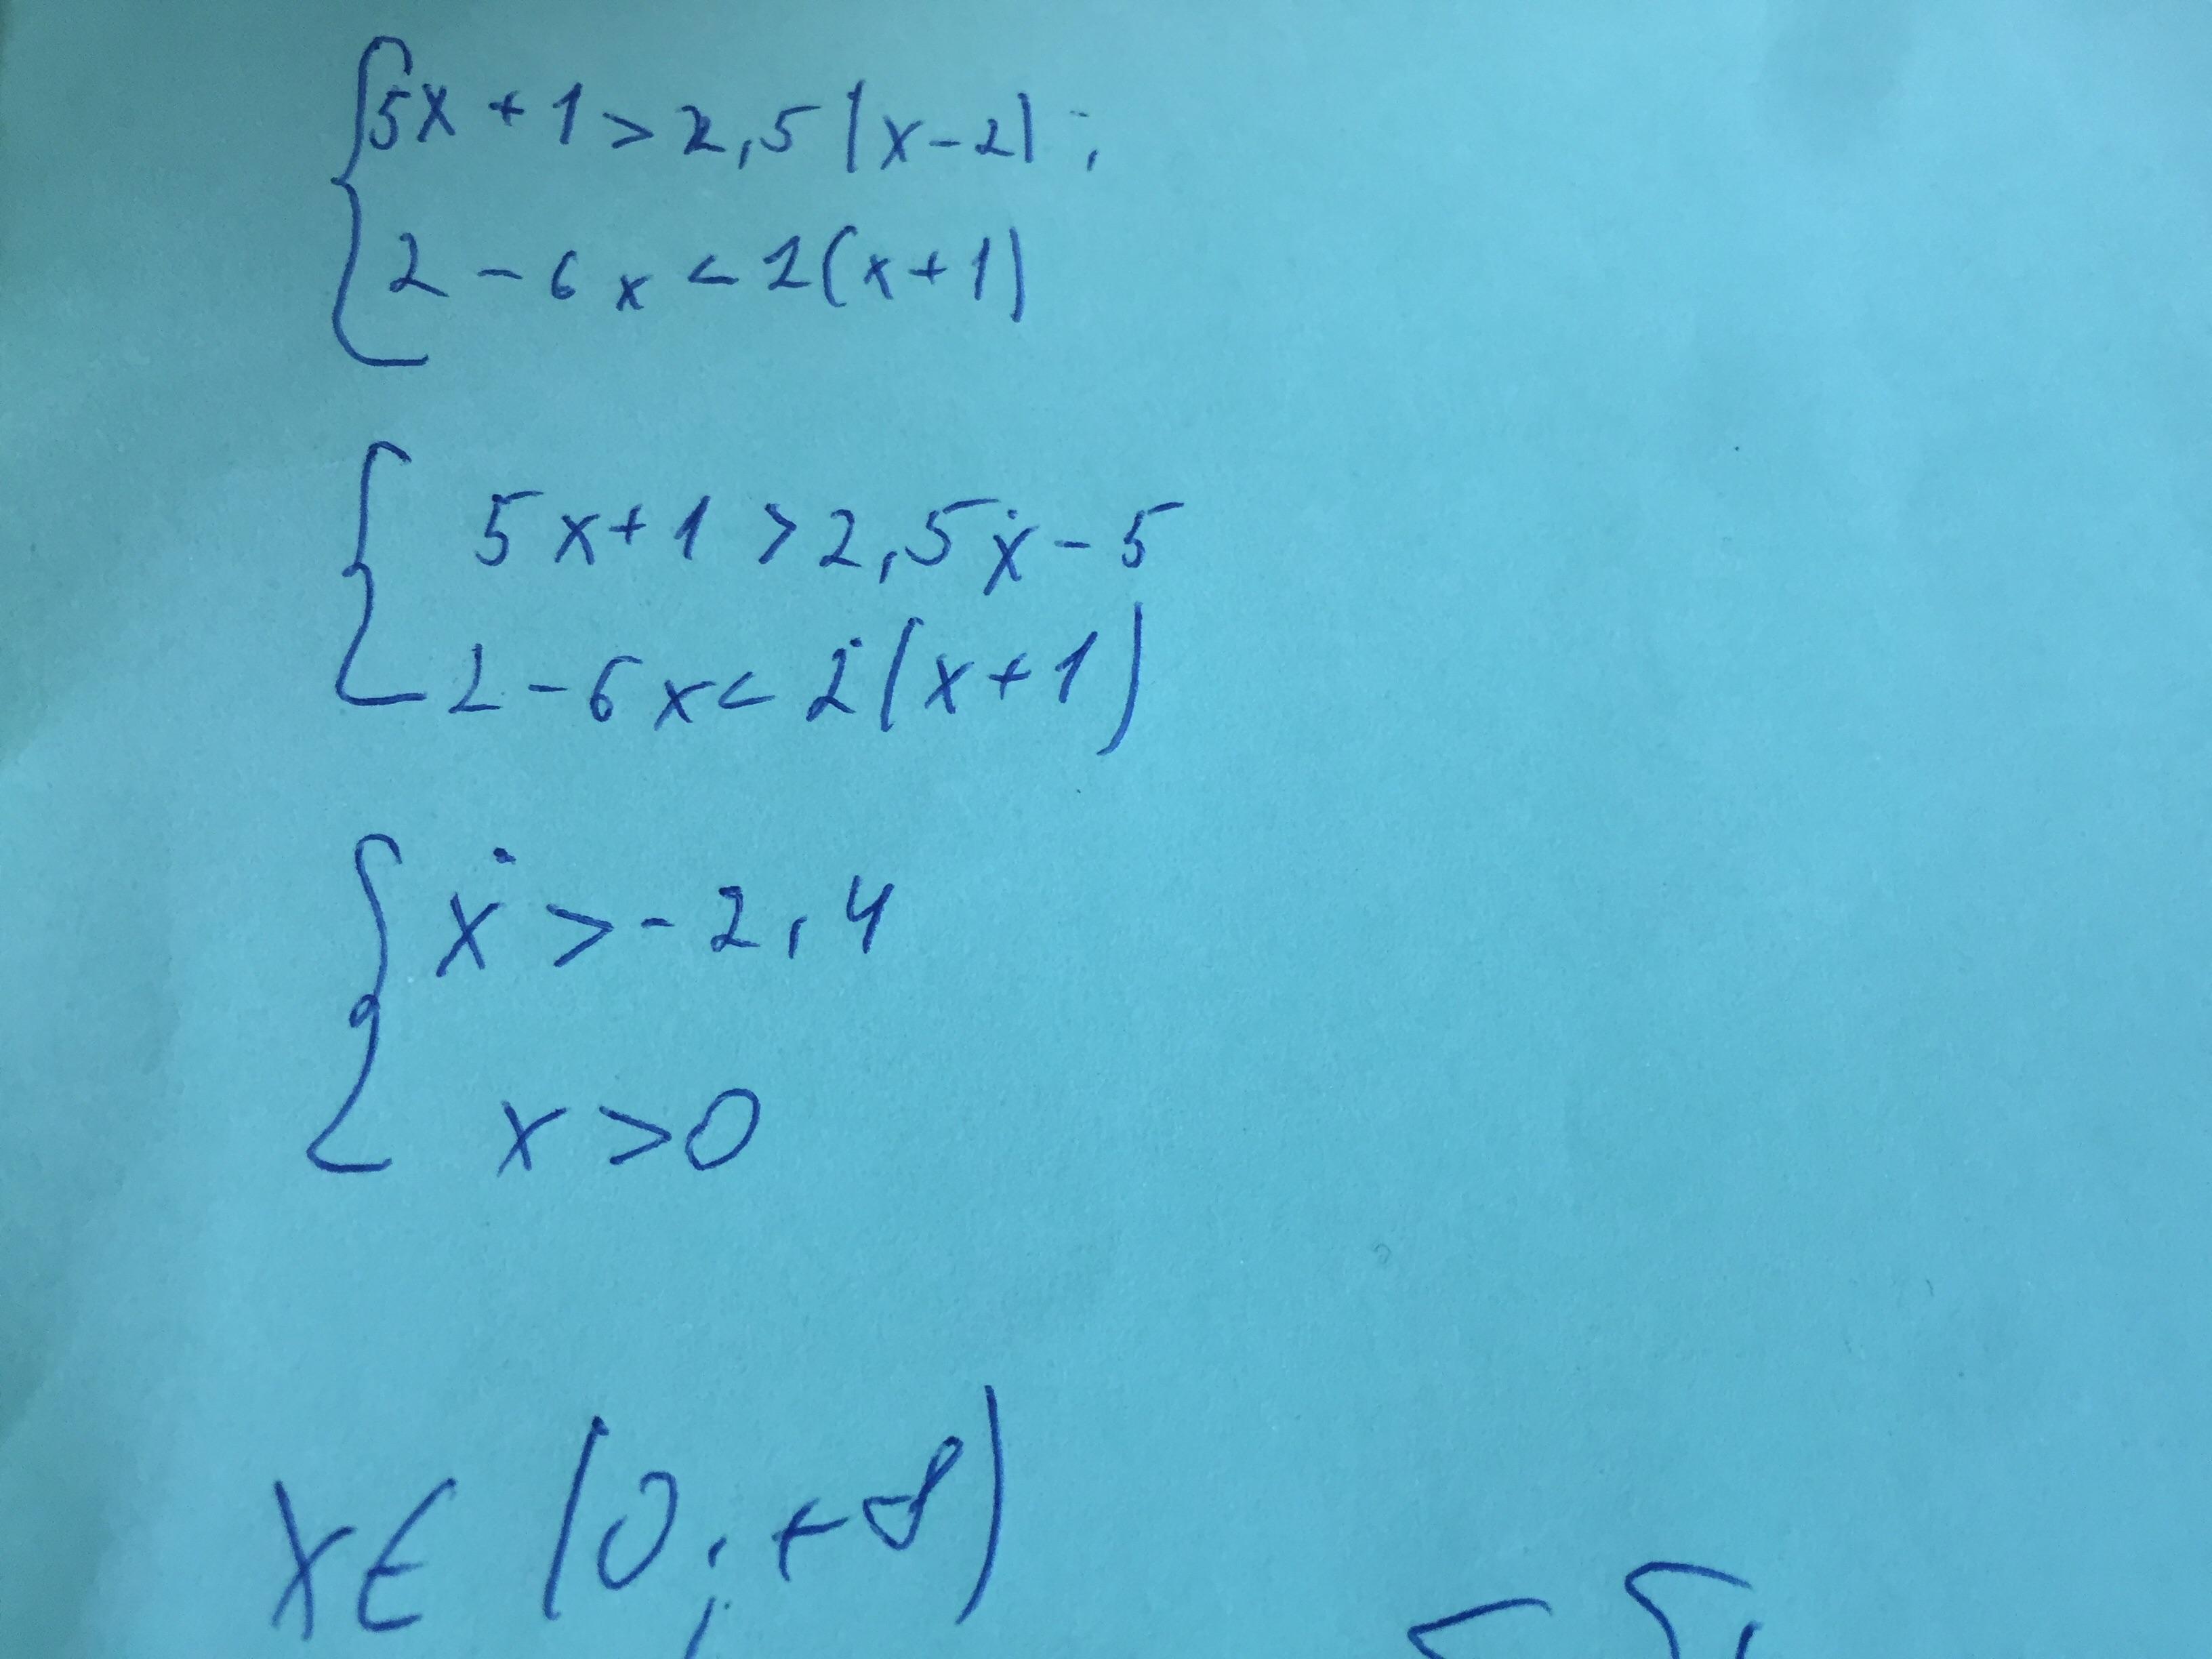 5x + 1 > 2,5 (x - 2) ;
2 - 6x < 2(x + 1)
5x + 1 > 2,5x - 5
2 - 6x < 2(x + 1)
x > - 2,4
x > 0
x ∈ (0; +∞)